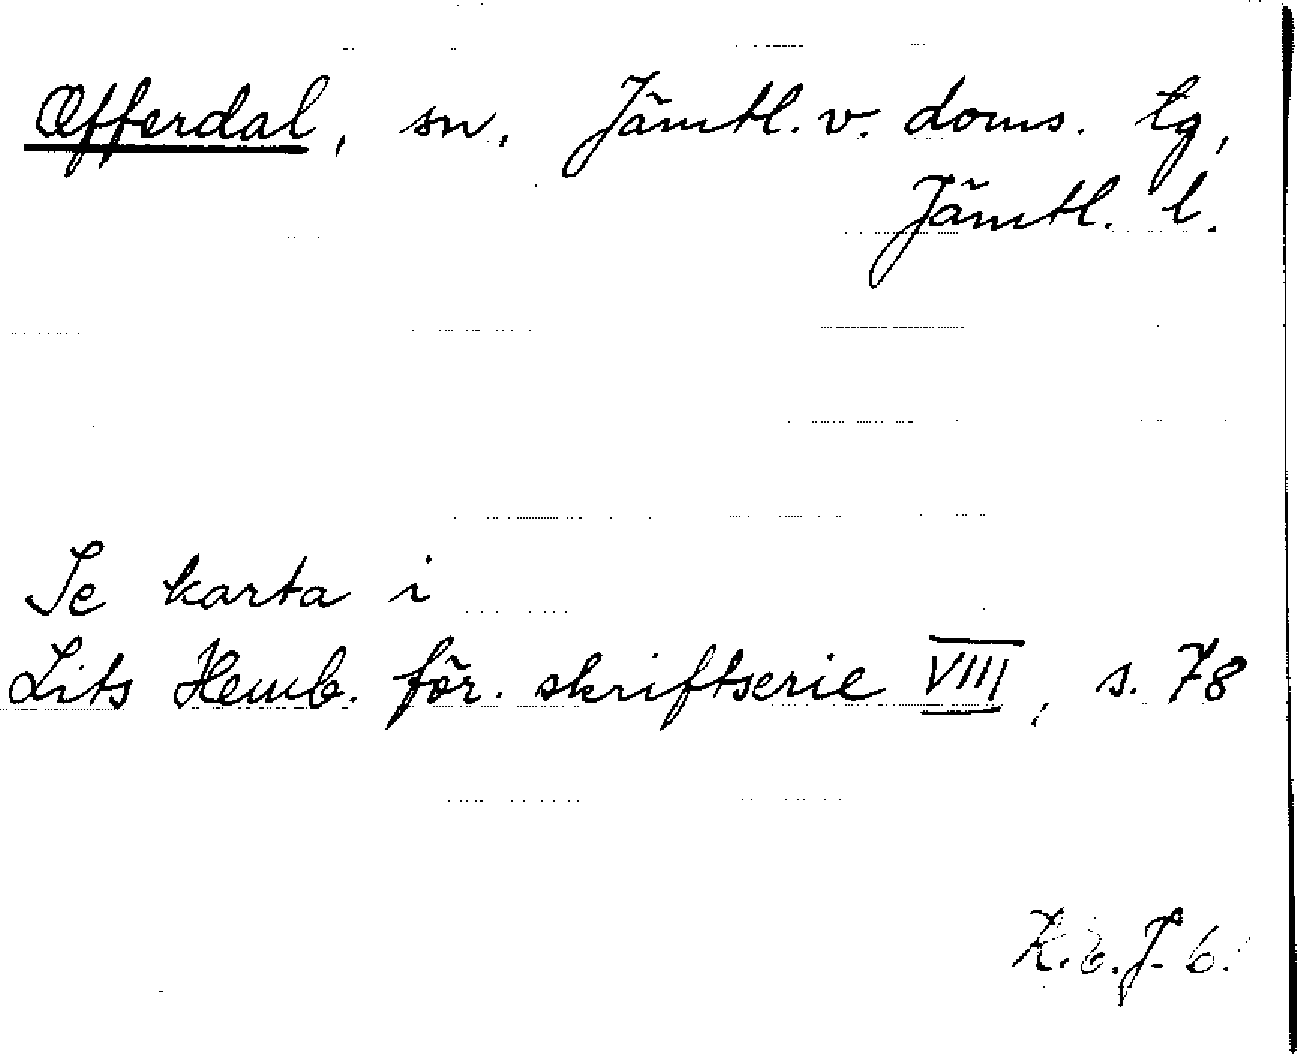 Offerdal, sn. Jämtl. v. doms. tg,
Jämtl. l.
Se karta i
Lits Hemb. för. skriftserie VIII, s. 78
K.E.J. 6.